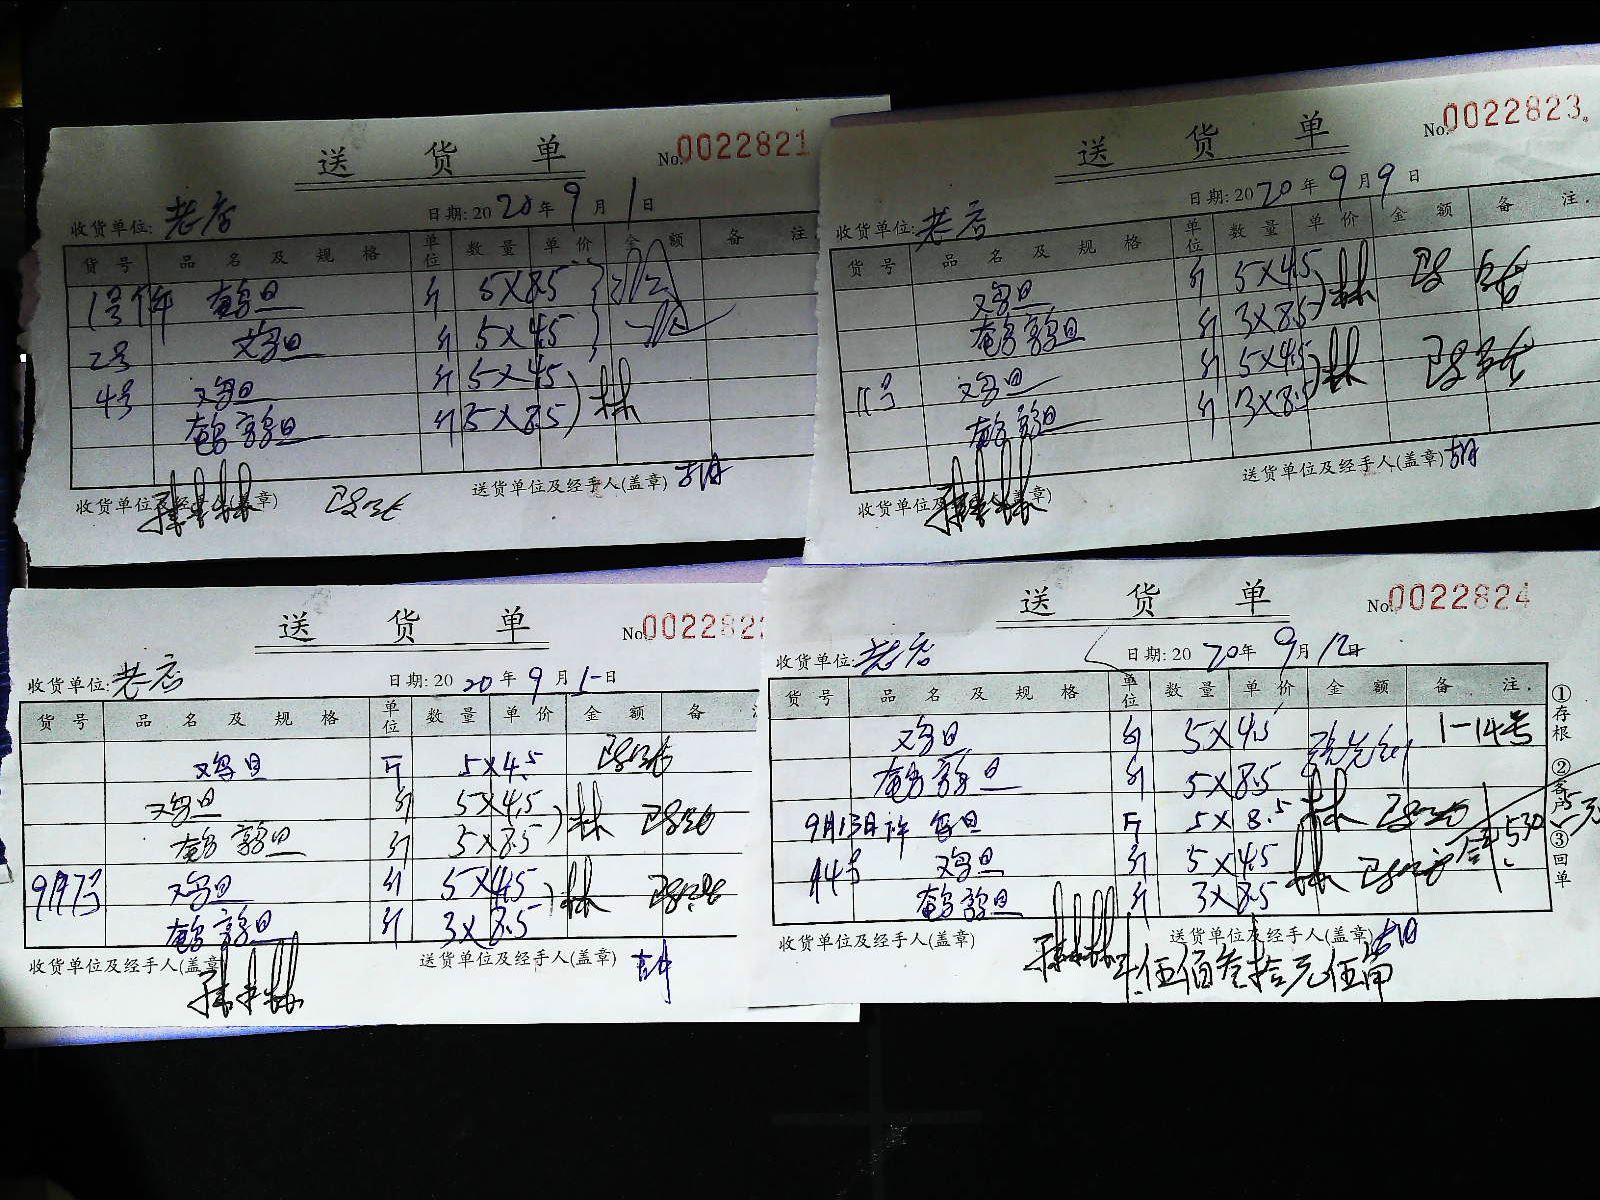 送货单
No.0022821
收货单位: 老店 日期: 2020年9月1日
货号 品名及规格 单位 数量 单价 金额 备注
1号 斤 5×8.5
2号 鸡旦 斤 5×4.5
4号 鸡旦 斤 5×4.5 林
鹌鹑旦 斤 5×8.5
收货单位及经手人(盖章) 送货单位及经手人(盖章) 胡
送货单
No.0022823
收货单位: 老店 日期: 2020年9月9日
货号 品名及规格 单位 数量 单价 金额 备注
鸡旦 斤 5×4.5 林 已
鹌鹑旦 斤 3×8.5
11号 鸡旦 斤 5×4.5 林 已
鹌鹑旦 斤 3×8.5
收货单位及经手人(盖章) 送货单位及经手人(盖章) 胡
送货单
No.002282
收货单位: 老店 日期: 2020年9月 日
货号 品名及规格 单位 数量 单价 金额 备
鸡旦 斤 5×4.5
鸡旦 斤 5×4.5 林
鹌鹑旦 斤 5×8.5
9月7号 鸡旦 斤 5×4.5 林
鹌鹑旦 斤 3×8.5
收货单位及经手人(盖章) 送货单位及经手人(盖章) 胡
送货单
No.0022824
收货单位: 老店 日期: 2020年9月12日
货号 品名及规格 单位 数量 单价 金额 备注
鸡旦 斤 5×4.5 1-14号
鹌鹑旦 斤 5×8.5
9月13日许 旦 斤 5×8.5 林
14号 鸡旦 斤 5×4.5 林 530.5元
鹌鹑旦 斤 3×8.5
收货单位及经手人(盖章) 送货单位及经手人(盖章) 胡
伍佰叁拾元伍角
①存根 ②客户 ③回单